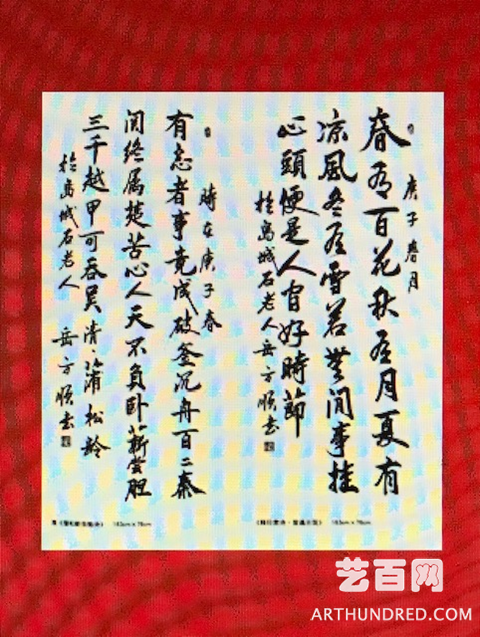 庚子春月
春有百花秋有月夏有
凉風冬有雪若無闲事挂
心頭便是人间好時節
於島城石老人岳方順书
時在庚子春
有志者事竟成破釜沉舟百二秦
関终属楚苦心人天不負卧薪尝胆
三千越甲可吞吴清·蒲松龄
於島城石老人 岳方順书
183cm×70cm
183cm×70cm
艺百网
ARTHUNDRED.COM